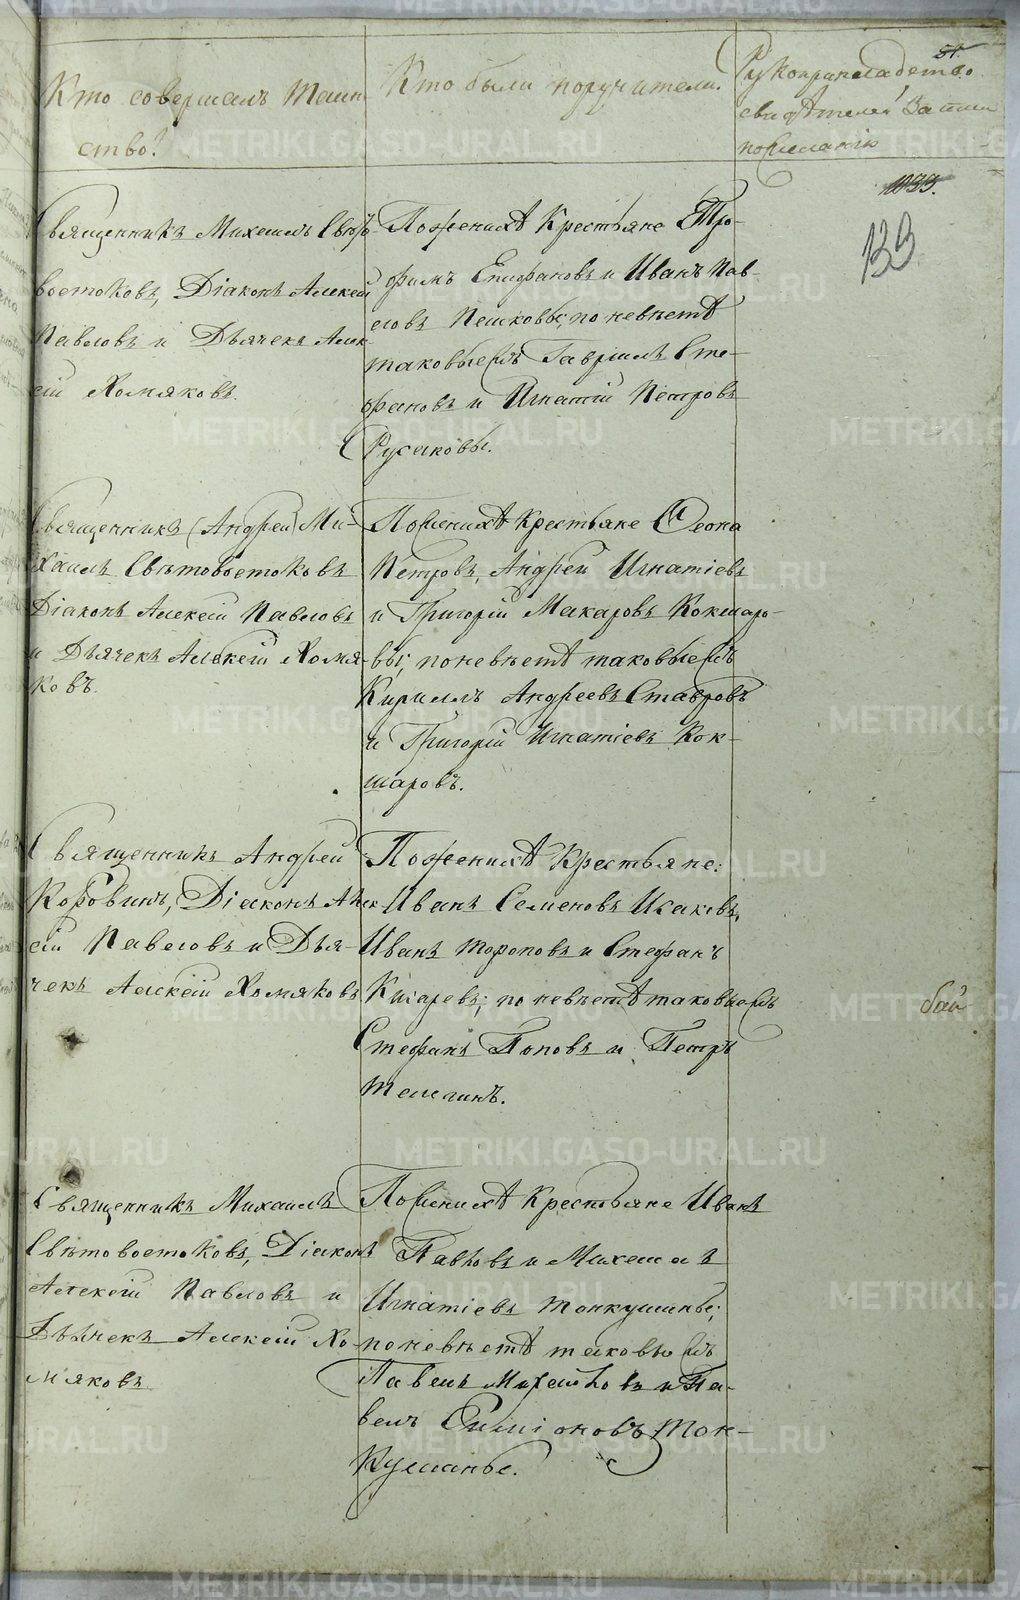 Кто совершалъ Таин
ство?
Кто были поручители.
Рукоприкладство
свидѣтелей Записи
по желанію
133
Священникъ Михаилъ Свѣто
востоковъ, Діаконъ Алексей
Павловъ и Дьячекъ Алек
сій Хомяковъ.
По женихѣ Крестьяне Тро-
фимъ Епифановъ и Иванъ Пав-
ловъ Пешковы; по невѣстѣ
таковыежъ Гаврiилъ Сте-
фановъ и Игнатій Петровъ
Русаковы.
Священникъ (Андрей) Ми-
хаилъ Свѣтовостоковъ
Діаконъ Алексій Павловъ
и Дьячекъ Алексій Хомя-
ковъ.
По женихѣ Крестьяне Леонъ
Петровъ, Андрей Игнатіевъ
и Григорій Макаровъ Кокшаро-
вы; по невѣстѣ таковыежъ
Кириллъ Андреевъ Ставровъ
и Григорій Игнатіевъ Кок-
шаровъ.
Священникъ Андрей
Коровинъ, Діаконъ Алек
сій Павловъ и Дья-
чекъ Алексій Хомяковъ
По женихѣ Крестьяне:
Иванъ Семеновъ Исаковъ,
Иванъ Тороповъ и Стефанъ
Кисаревъ; по невѣстѣ таковыежъ
Стефанъ Поповъ и Петръ
Телегинъ.
Священникъ Михаилъ
Свѣтовостоковъ, Діаконъ
Алексій Павловъ и
Дьячекъ Алексій Хо-
мяковъ
По женихѣ Крестьяне Иванъ
Павловъ и Михаилъ
Игнатіевъ Тонкушины;
по невѣстѣ таковыежъ
Павелъ и Па-
велъ Симіоновъ Тон-
кушины.
METRIKI.GASO-URAL.RU